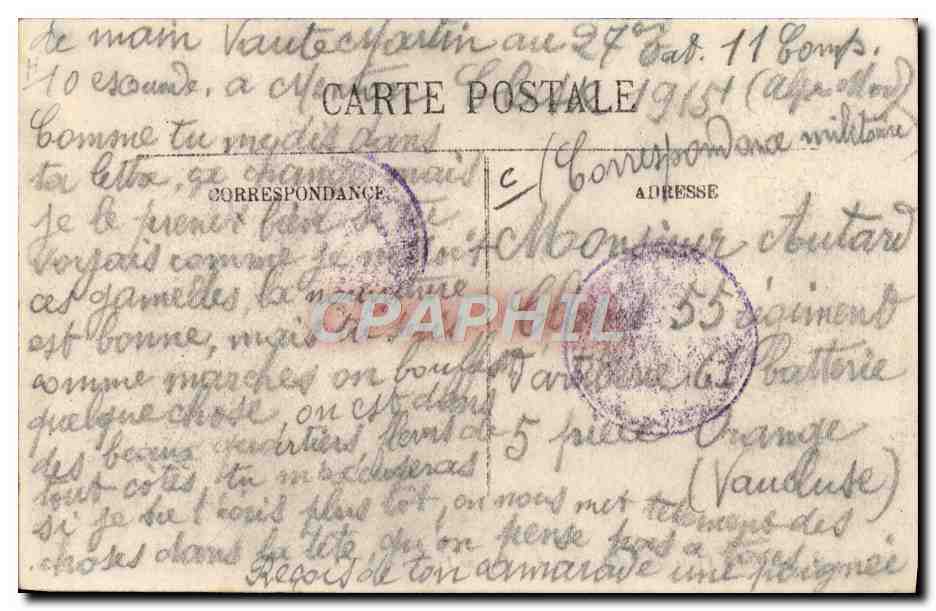 de main Vaute Martin au 27e Bat. 11 Comp.
10 escouade, a 1915 (Alpe Mari
CARTE POSTALE
Comme tu me dis dans
(Correspondance militaire)
ta lettre, ça change mais
CORRESPONDANCE
ADRESSE
je le prenez bien si tu
Monsieur Autard
voyais comme je
ces gamelles, la nourriture
CPAPHIL
55 régiment
est bonne, mais
comme marches on
d'artillerie 61 batterie
quelque chose, on est dans
5 pièce Orange
des beaux quartiers fleuris de
(Vaucluse)
tout côtés tu m'excuseras
si je ne t'écris plus tôt, on nous met tellement des
choses dans la tête qu'on pense pas a
Reçois de ton camarade une poignée